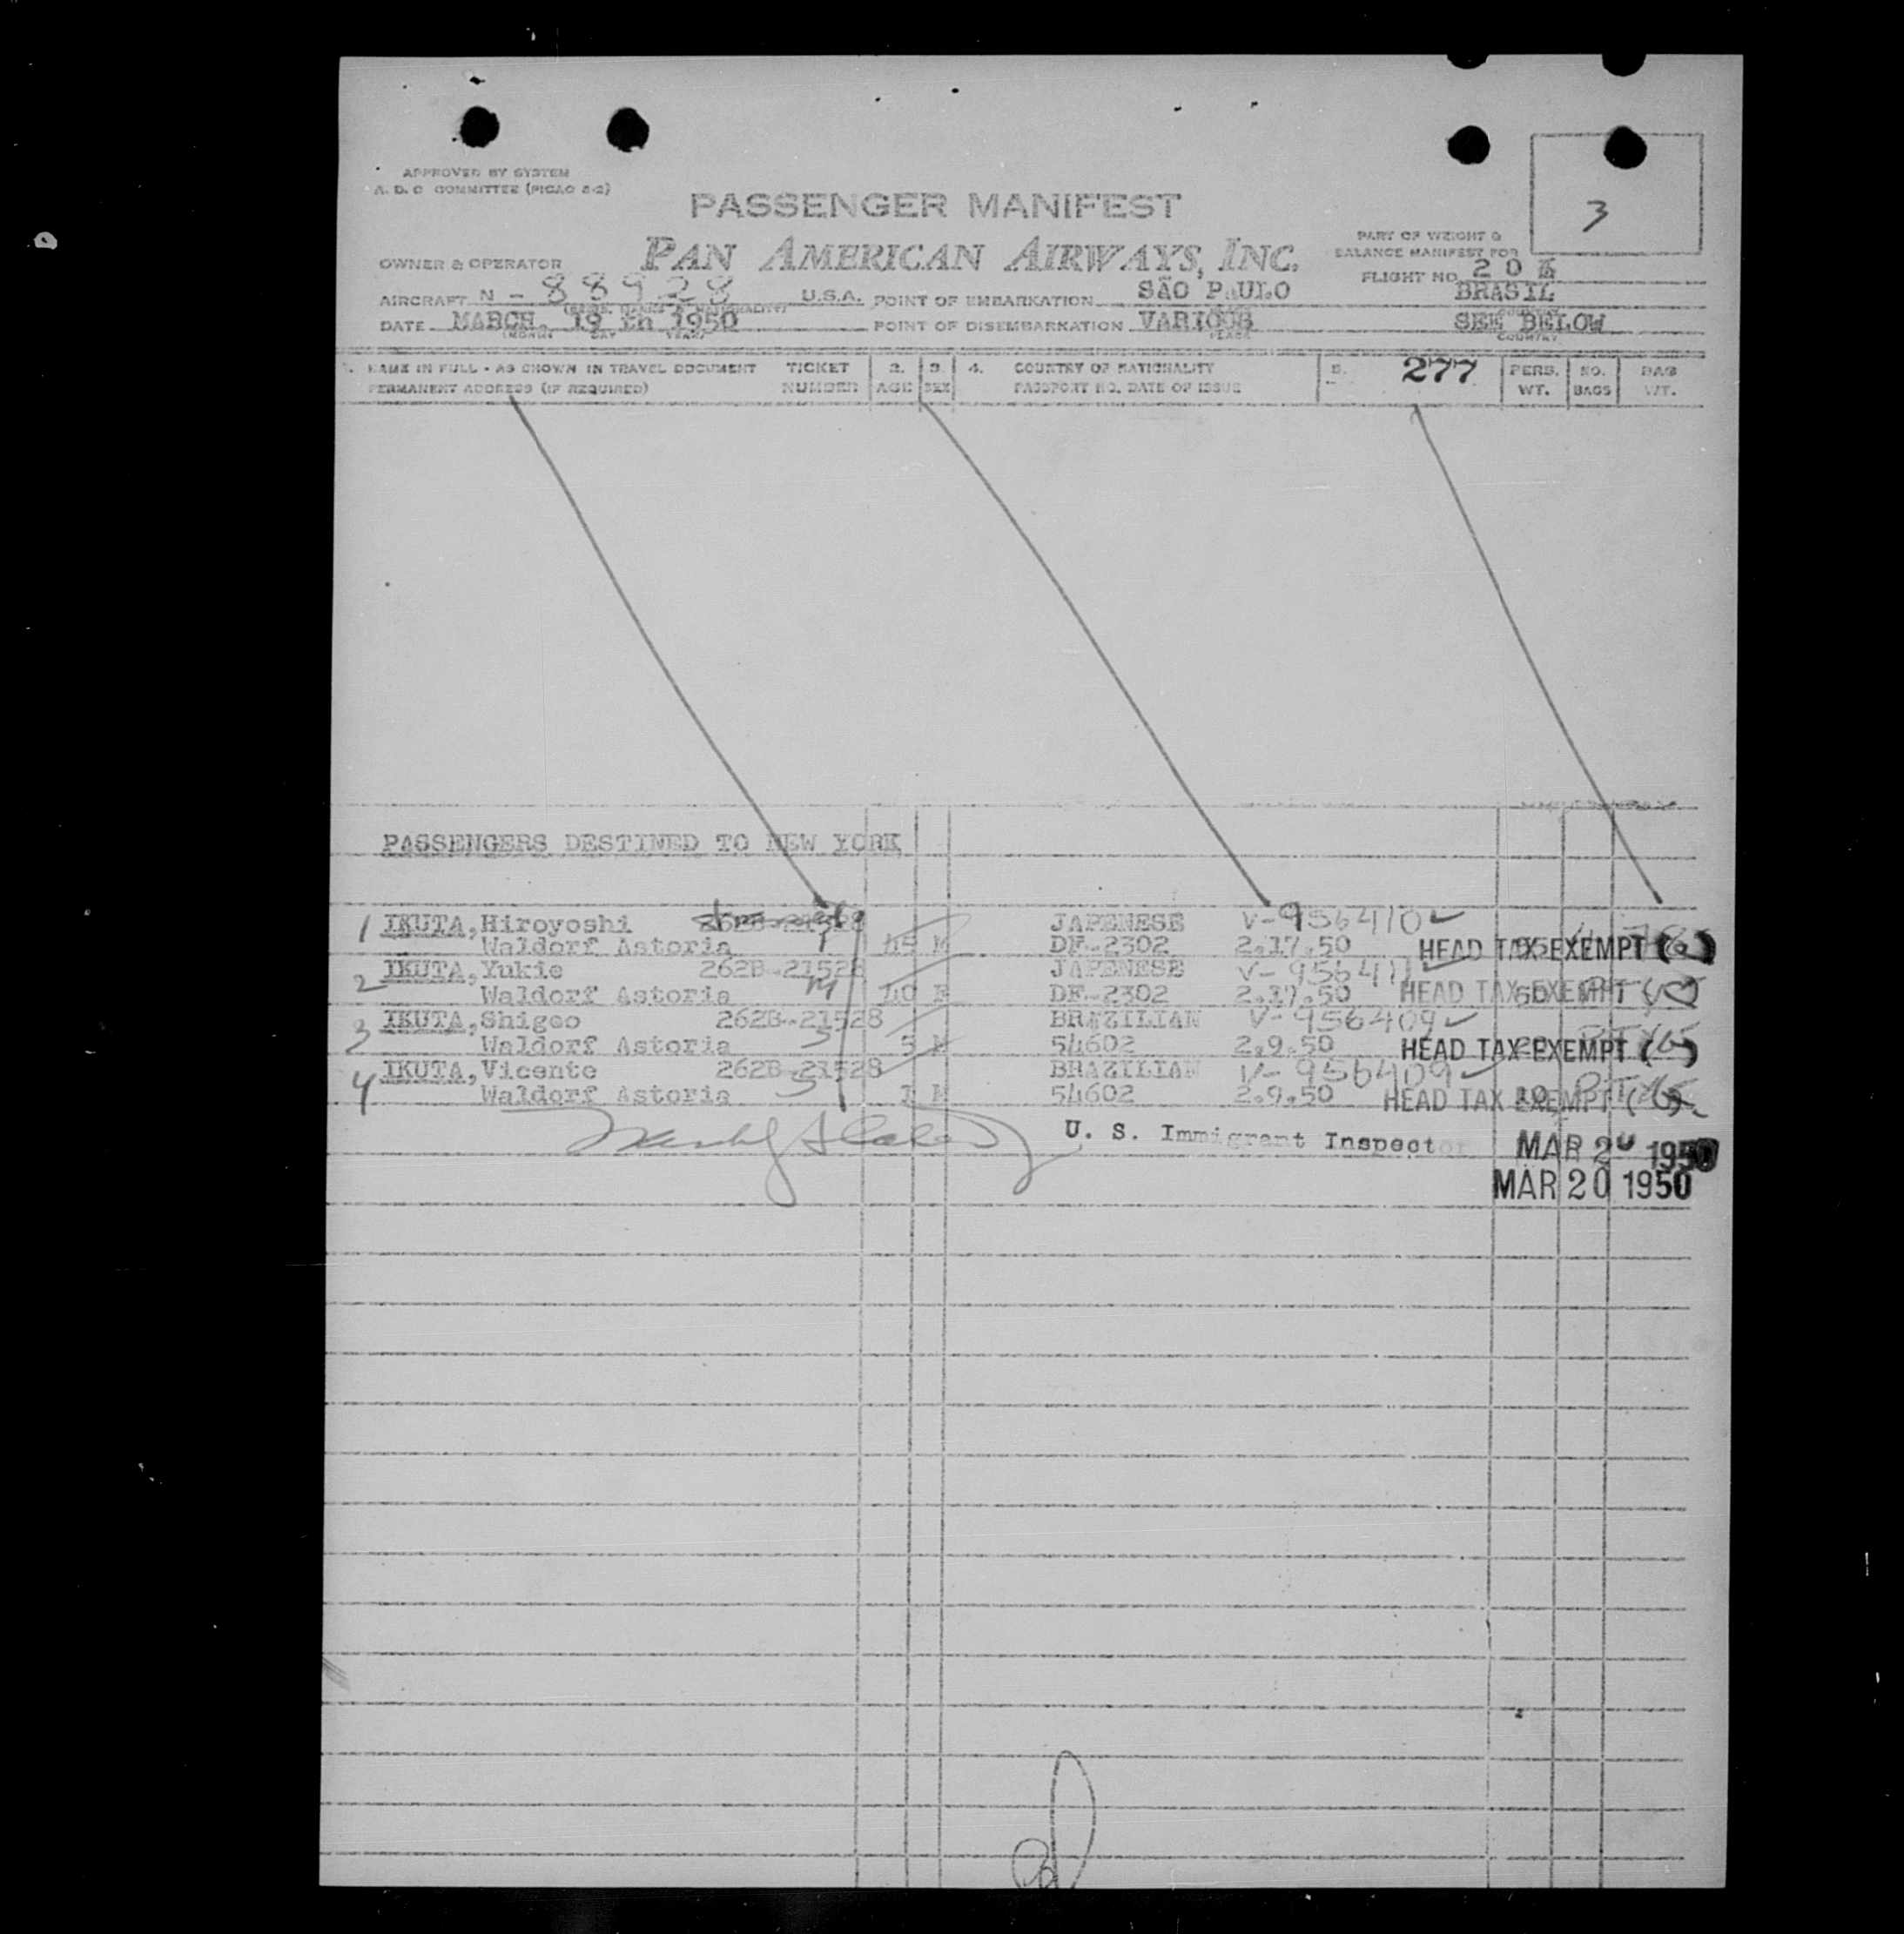 APPROVED BY SYSTEM
A. D. C COMMITTEE (PICAO 2-2)
PASSENGER MANIFEST
3
PART OF WEIGHT &
BALANCE MANIFEST FOR
OWNER & OPERATOR PAN AMERICAN AIRWAYS, INC.
FLIGHT NO. 20
AIRCRAFT N - 88928 U.S.A. POINT OF EMBARKATION SÃO PAULO BRASIL
DATE MARCH, 19 th 1950 POINT OF DISEMBARKATION VARIOUS SEE BELOW
(MONTH DAY YEAR) PLACE COUNTRY
1. NAME IN FULL - AS SHOWN IN TRAVEL DOCUMENT TICKET 2. 3. 4. COUNTRY OF NATIONALITY 5. 277 PERS. NO. BAG
PERMANENT ADDRESS (IF REQUIRED) NUMBER AGE SEX PASSPORT NO. DATE OF ISSUE WT. BAGS WT.
PASSENGERS DESTINED TO NEW YORK
1 IKUTA, Hiroyoshi JAPENESE V-956410
Waldorf Astoria 45 M DF-2302 2.17.50 HEAD TAX EXEMPT
2 IKUTA, Yukie 262B-21528 JAPENESE V-956411
Waldorf Astoria 40 F DF-2302 2.17.50 HEAD TAX EXEMPT
3 IKUTA, Shigeo 262B-21528 BRAZILIAN V-956409
Waldorf Astoria 5 M 54602 2.9.50 HEAD TAX EXEMPT
4 IKUTA, Vicente 262B-21528 BRAZILIAN V-956409
Waldorf Astoria 1 M 54602 2.9.50 HEAD TAX EXEMPT
U. S. Immigrant Inspector MAR 20 1950
MAR 20 1950